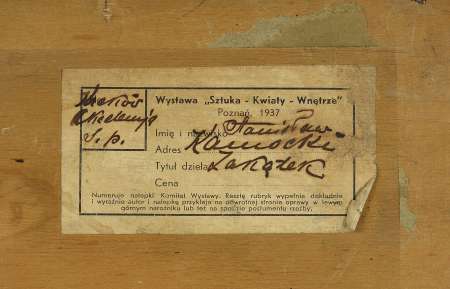 Kraków
Akademja
S. p.
Wystawa „Sztuka - Kwiaty - Wnętrze"
Poznań, 1937
Imię i nazwisko Stanisław
Adres Kamocki
Tytuł dzieła Zakątek
Cena
Numeruje nalepki Komitet Wystawy. Resztę rubryk wypełnia dokładnie
i wyraźnie autor i nalepkę przykleja na odwrotnej stronie oprawy w lewym
górnym narożniku lub też na spodzie postumentu rzeźby.